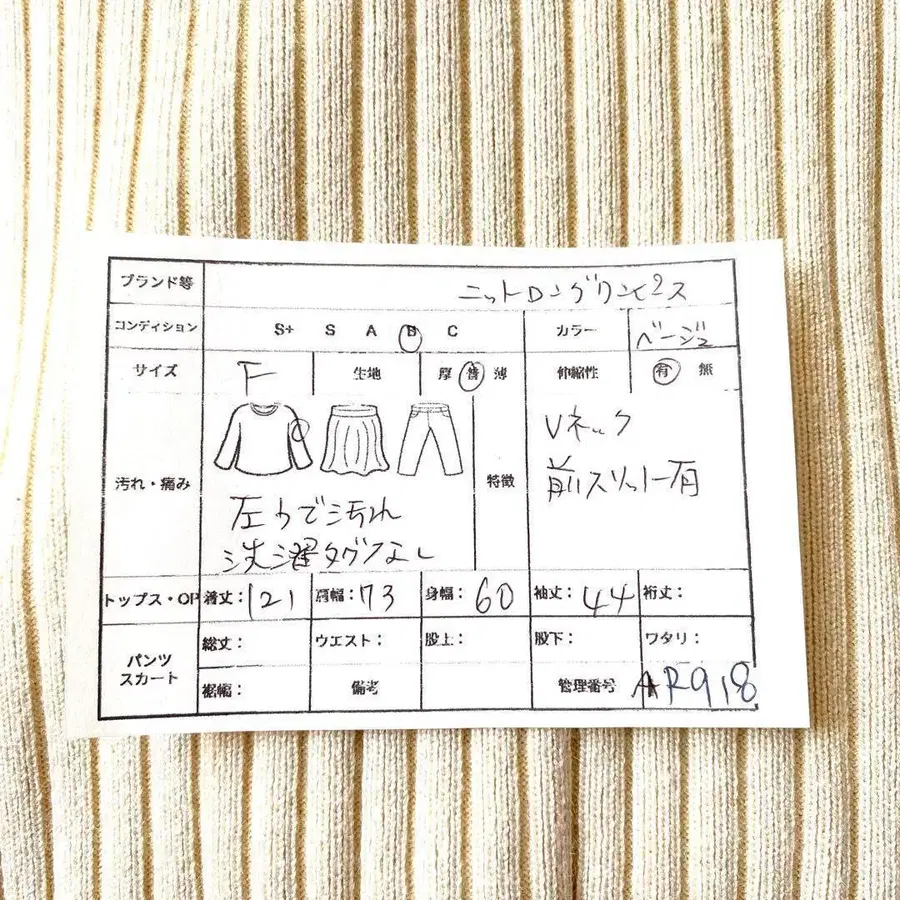 ブランド等 ニットロングワンピース
コンディション S+ S A B C カラー ベージュ
サイズ F 生地 厚 普 薄 伸縮性 有 無
汚れ・痛み 特徴
Vネック
前スリット有
左うで汚れ
洗濯タグなし
トップス・OP 着丈：121 肩幅：73 身幅：60 袖丈：44 裄丈：
パンツ スカート
総丈： ウエスト： 股上： 股下： ワタリ：
裾幅： 備考 管理番号 AR918